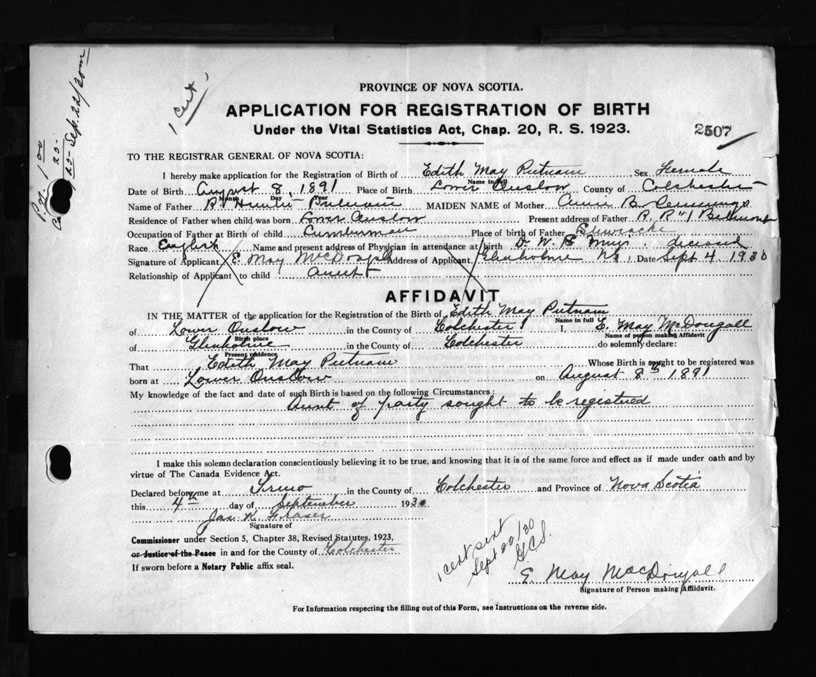 PROVINCE OF NOVA SCOTIA.
1 Cert
APPLICATION FOR REGISTRATION OF BIRTH
Under the Vital Statistics Act, Chap. 20, R. S. 1923.
2507
TO THE REGISTRAR GENERAL OF NOVA SCOTIA:
I hereby make application for the Registration of Birth of Edith May Putnam Sex Female
Name in full
Date of Birth August 8, 1891 Place of Birth Lower Onslow County of Colchester
Month Day Year
Name of Father Putnam MAIDEN NAME of Mother Annie B. Cummings
Residence of Father when child was born Lower Onslow Present address of Father R. R #1 Belmont
Occupation of Father at Birth of child Lumberman Place of birth of Father
Race English Name and present address of Physician in attendance at birth Dr. W. deceased
Signature of Applicant E May McDougall Address of Applicant Glenholme NS Date Sept 4 1930
Relationship of Applicant to child aunt
AFFIDAVIT
IN THE MATTER of the application for the Registration of the Birth of Edith May Putnam
Name in full
of Lower Onslow in the County of Colchester I, E. May McDougall
Birth place Name of person making Affidavit
of Glenholme in the County of Colchester do solemnly declare:
Present residence
That Edith May Putnam Whose Birth is sought to be registered was
born at Lower Onslow on August 8th 1891
My knowledge of the fact and date of such Birth is based on the following Circumstances:
Aunt of party sought to be registered
I make this solemn declaration conscientiously believing it to be true, and knowing that it is of the same force and effect as if made under oath and by
virtue of The Canada Evidence Act.
Declared before me at Truro in the County of Colchester and Province of Nova Scotia
this 4th day of September 1930
Jas. K. Fraser
Signature of
Commissioner under Section 5, Chapter 38, Revised Statutes, 1923,
or Justice of the Peace in and for the County of Colchester
If sworn before a Notary Public affix seal.
1 cert sent
Sept 20/30
E. May MacDougall
Signature of Person making Affidavit.
For Information respecting the filling out of this Form, see Instructions on the reverse side.